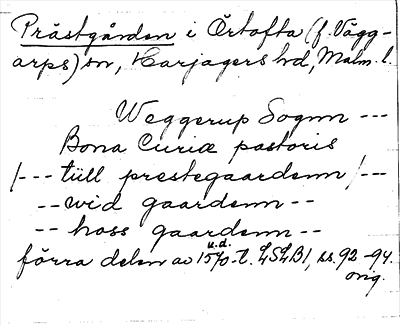 Prästgården i Örtofta (f. Vägg-
arps) sn, Harjagers hd, Malm. l.
Weggerup Sognn ---
Bona Curiæ pastoris
/--- tüll prestegaardenn /---
-- wid gaardenn --
-- hoss gaardenn --
u.d.
förra delen av 15/0-t. LSLB1, ss. 92-94.
orig.